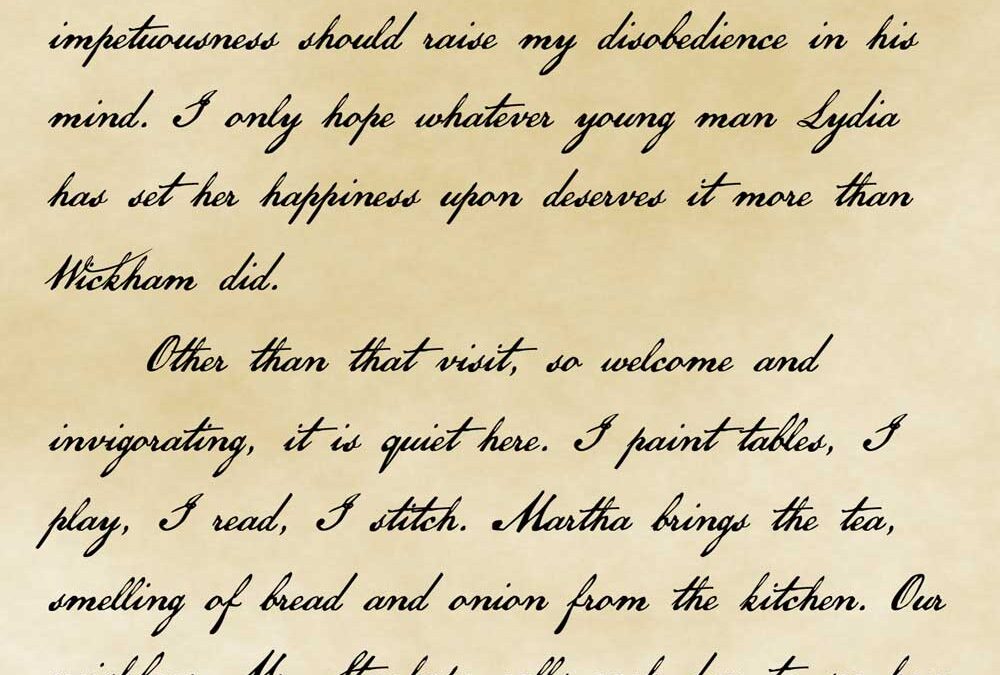 impetuousness should raise my disobedience in his
mind. I only hope whatever young man Lydia
has set her happiness upon deserves it more than
Wickham did.
Other than that visit, so welcome and
invigorating, it is quiet here. I paint tables, I
play, I read, I stitch. Martha brings the tea,
smelling of bread and onion from the kitchen. Our